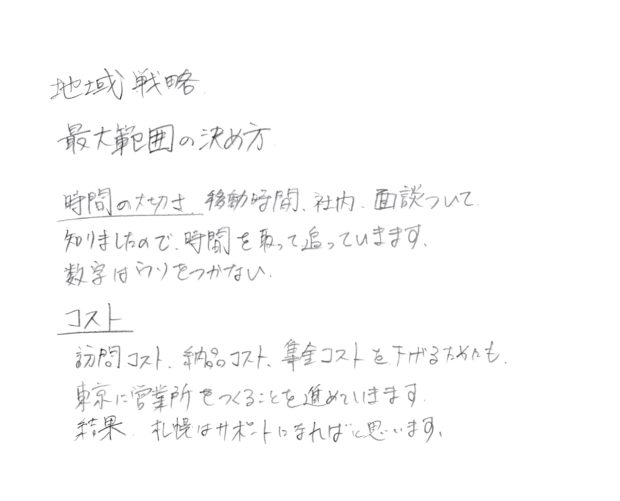 地域戦略
最大範囲の決め方
時間の大切さ、移動時間、社内、面談ついて
知りましたので、時間を取って追っていきます、
数字はウソをつかない、
コスト
訪問コスト、納品コスト、集金コストを下げるためにも、
東京に営業所をつくることを進めていきます
結果、札幌はサポートになればと思います、